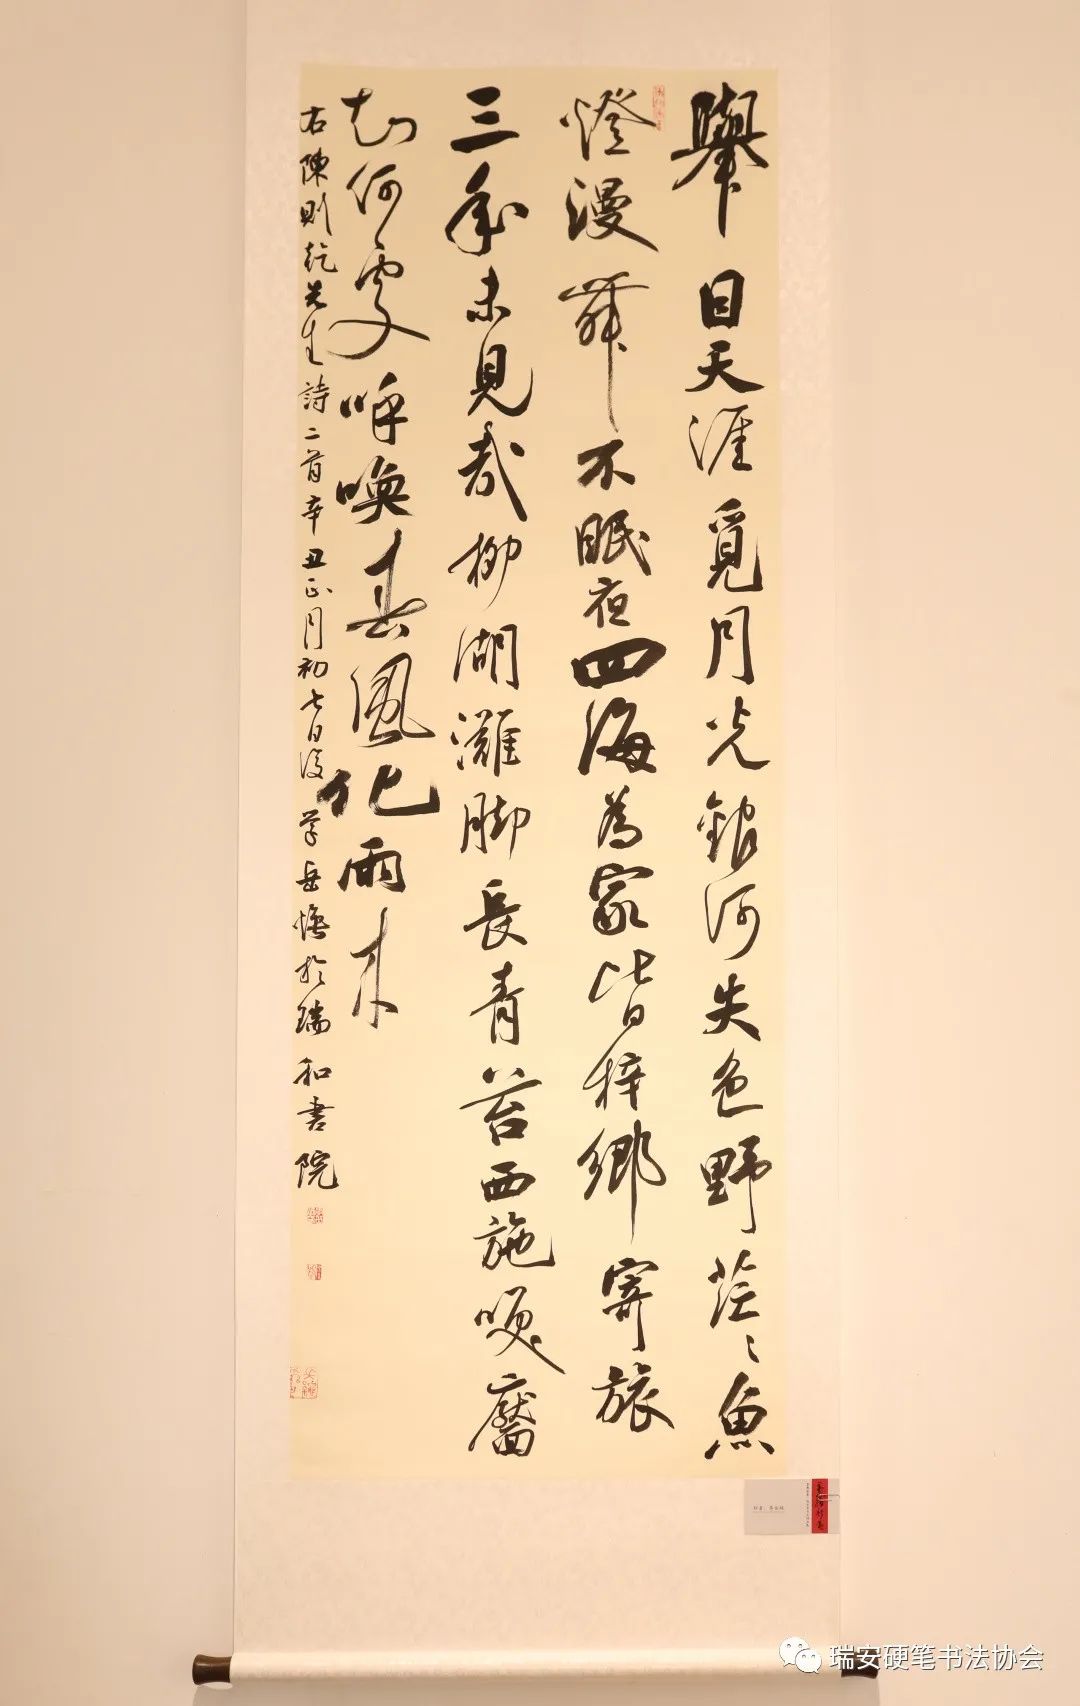 舉目天涯覓月光銀河失色野茫〻魚
燈漫舞不眠夜四海為家皆梓鄉寄旅
三年未見哉柳湖灘脚長青苔西施
知何處呼喚春風化雨來
右陳則乾先生詩二首辛丑正月初七日後學岳悟於瑞和書院
瑞安硬笔书法协会